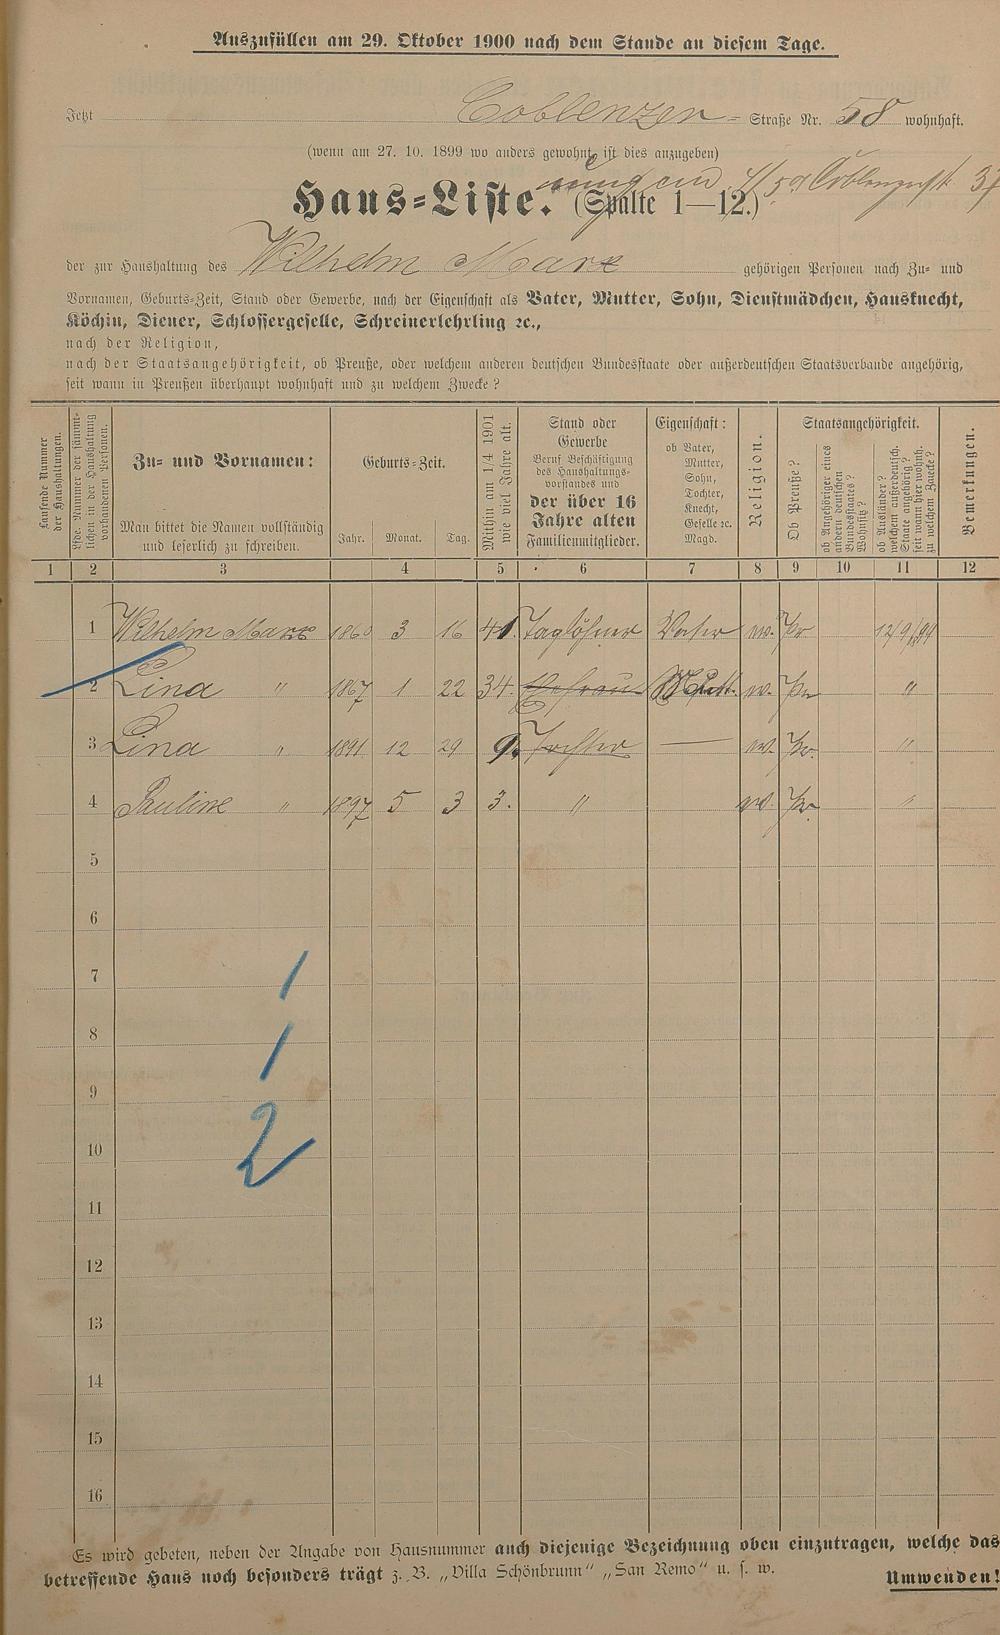 Auszufüllen am 29. Oktober 1900 nach dem Stande an diesem Tage.
Jetzt Coblenzer- Straße Nr. 58 wohnhaft.
(wenn am 27. 10. 1899 wo anders gewohnt, ist dies anzugeben)
Coblenzerstr. 37
Haus-Liste. (Spalte 1—12.)
der zur Haushaltung des Wilhelm Marx gehörigen Personen nach Zu- und
Vornamen, Geburts-Zeit, Stand oder Gewerbe, nach der Eigenschaft als Vater, Mutter, Sohn, Dienstmädchen, Hausknecht,
Köchin, Diener, Schlossergeselle, Schreinerlehrling ꝛc.,
nach der Religion,
nach der Staatsangehörigkeit, ob Preuße, oder welchem anderen deutschen Bundesstaate oder außerdeutschen Staatsverbande angehörig,
seit wann in Preußen überhaupt wohnhaft und zu welchem Zwecke?
Laufende Nummer
der Haushaltungen.
Lfde. Nummer der sämmt-
lichen in der Haushaltung
vorhandenen Personen.
Zu- und Vornamen:
Man bittet die Namen vollständig
und leserlich zu schreiben.
Geburts-Zeit.
Jahr. Monat. Tag.
Mithin am 1/4 1901
wie viel Jahre alt.
Stand oder
Gewerbe
Beruf Beschäftigung
des Haushaltungs-
vorstandes und
der über 16
Jahre alten
Familienmitglieder.
Eigenschaft:
ob Vater,
Mutter,
Sohn,
Tochter,
Knecht,
Geselle ꝛc.
Magd.
Religion.
Staatsangehörigkeit.
Ob Preuße?
ob Angehöriger eines
andern deutschen
Bundesstaates?
Wohnsitz?
ob Ausländer?
welchem außerdeutsch.
Staate angehörig?
seit wann hier wohnh.
zu welchem Zwecke?
Bemerkungen.
1 2 3 4 5 6 7 8 9 10 11 12
1 Wilhelm Marx 1860 3 16 41. Taglöhner Vater ev. Pr 12/9/94
2 Lina " 1867 1 22 34. Ehefrau Mutt. ev. Pr "
3 Lina " 1891 12 29 9. Tochter — ev. Pr. "
4 Pauline " 1897 5 3 3. " ev. Pr. "
5
6
7
1
8
1
9
10
2
11
12
13
14
15
16
Es wird gebeten, neben der Angabe von Hausnummer auch diejenige Bezeichnung oben einzutragen, welche das
betreffende Haus noch besonders trägt z. B. „Villa Schönbrunn“ „San Remo“ u. s. w.
Umwenden!